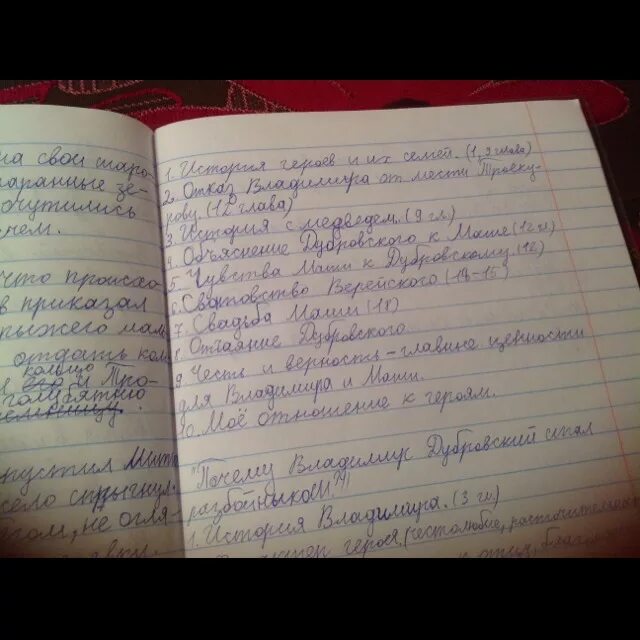 на свои
очутились
что происхо-
в приказал
рыжего маль
отдать коль
кольцо
я его и Тро-
голубятню
пустил Мит
село спрыгнул
гом, не огля-
1. История героев и их семей. (1, 9 глава)
2. Отказ Владимира от мести Троеку-
рову (12 глава)
3. История с медведем. (9 гл.)
4. Объяснение Дубровского к Маше (12 гл)
5. Чувства Маши к Дубровскому (12)
6. Сватовство Верейского (14-15)
7. Свадьба Маши (18)
8. Отчаяние Дубровского.
9. Честь и верность - главные ценности
для Владимира и Маши.
10. Моё отношение к героям.
"Почему Владимир Дубровский стал
разбойником?"
1. История Владимира. (3 гл)
героя (честолюбие, расточительность